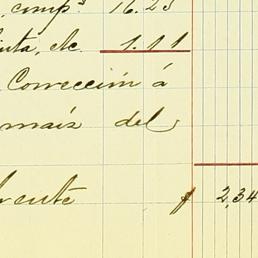 , comps 16.23
uta, etc. 1.11
Corrección á
maiz del
frente $ 2,34